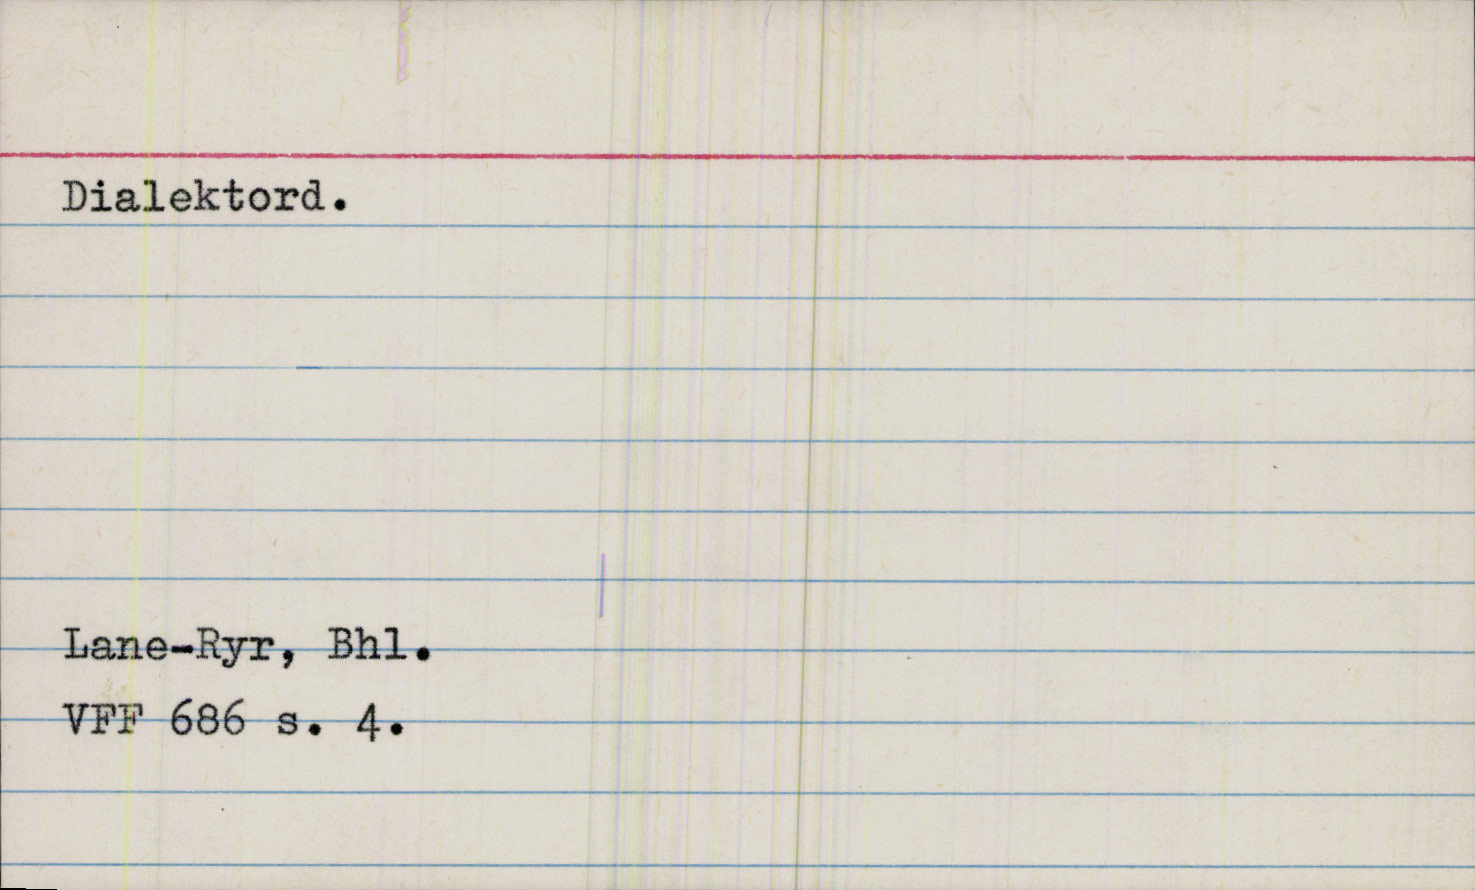 Dialektord.
Lane-Ryr, Bhl.
VFF 686 s. 4.